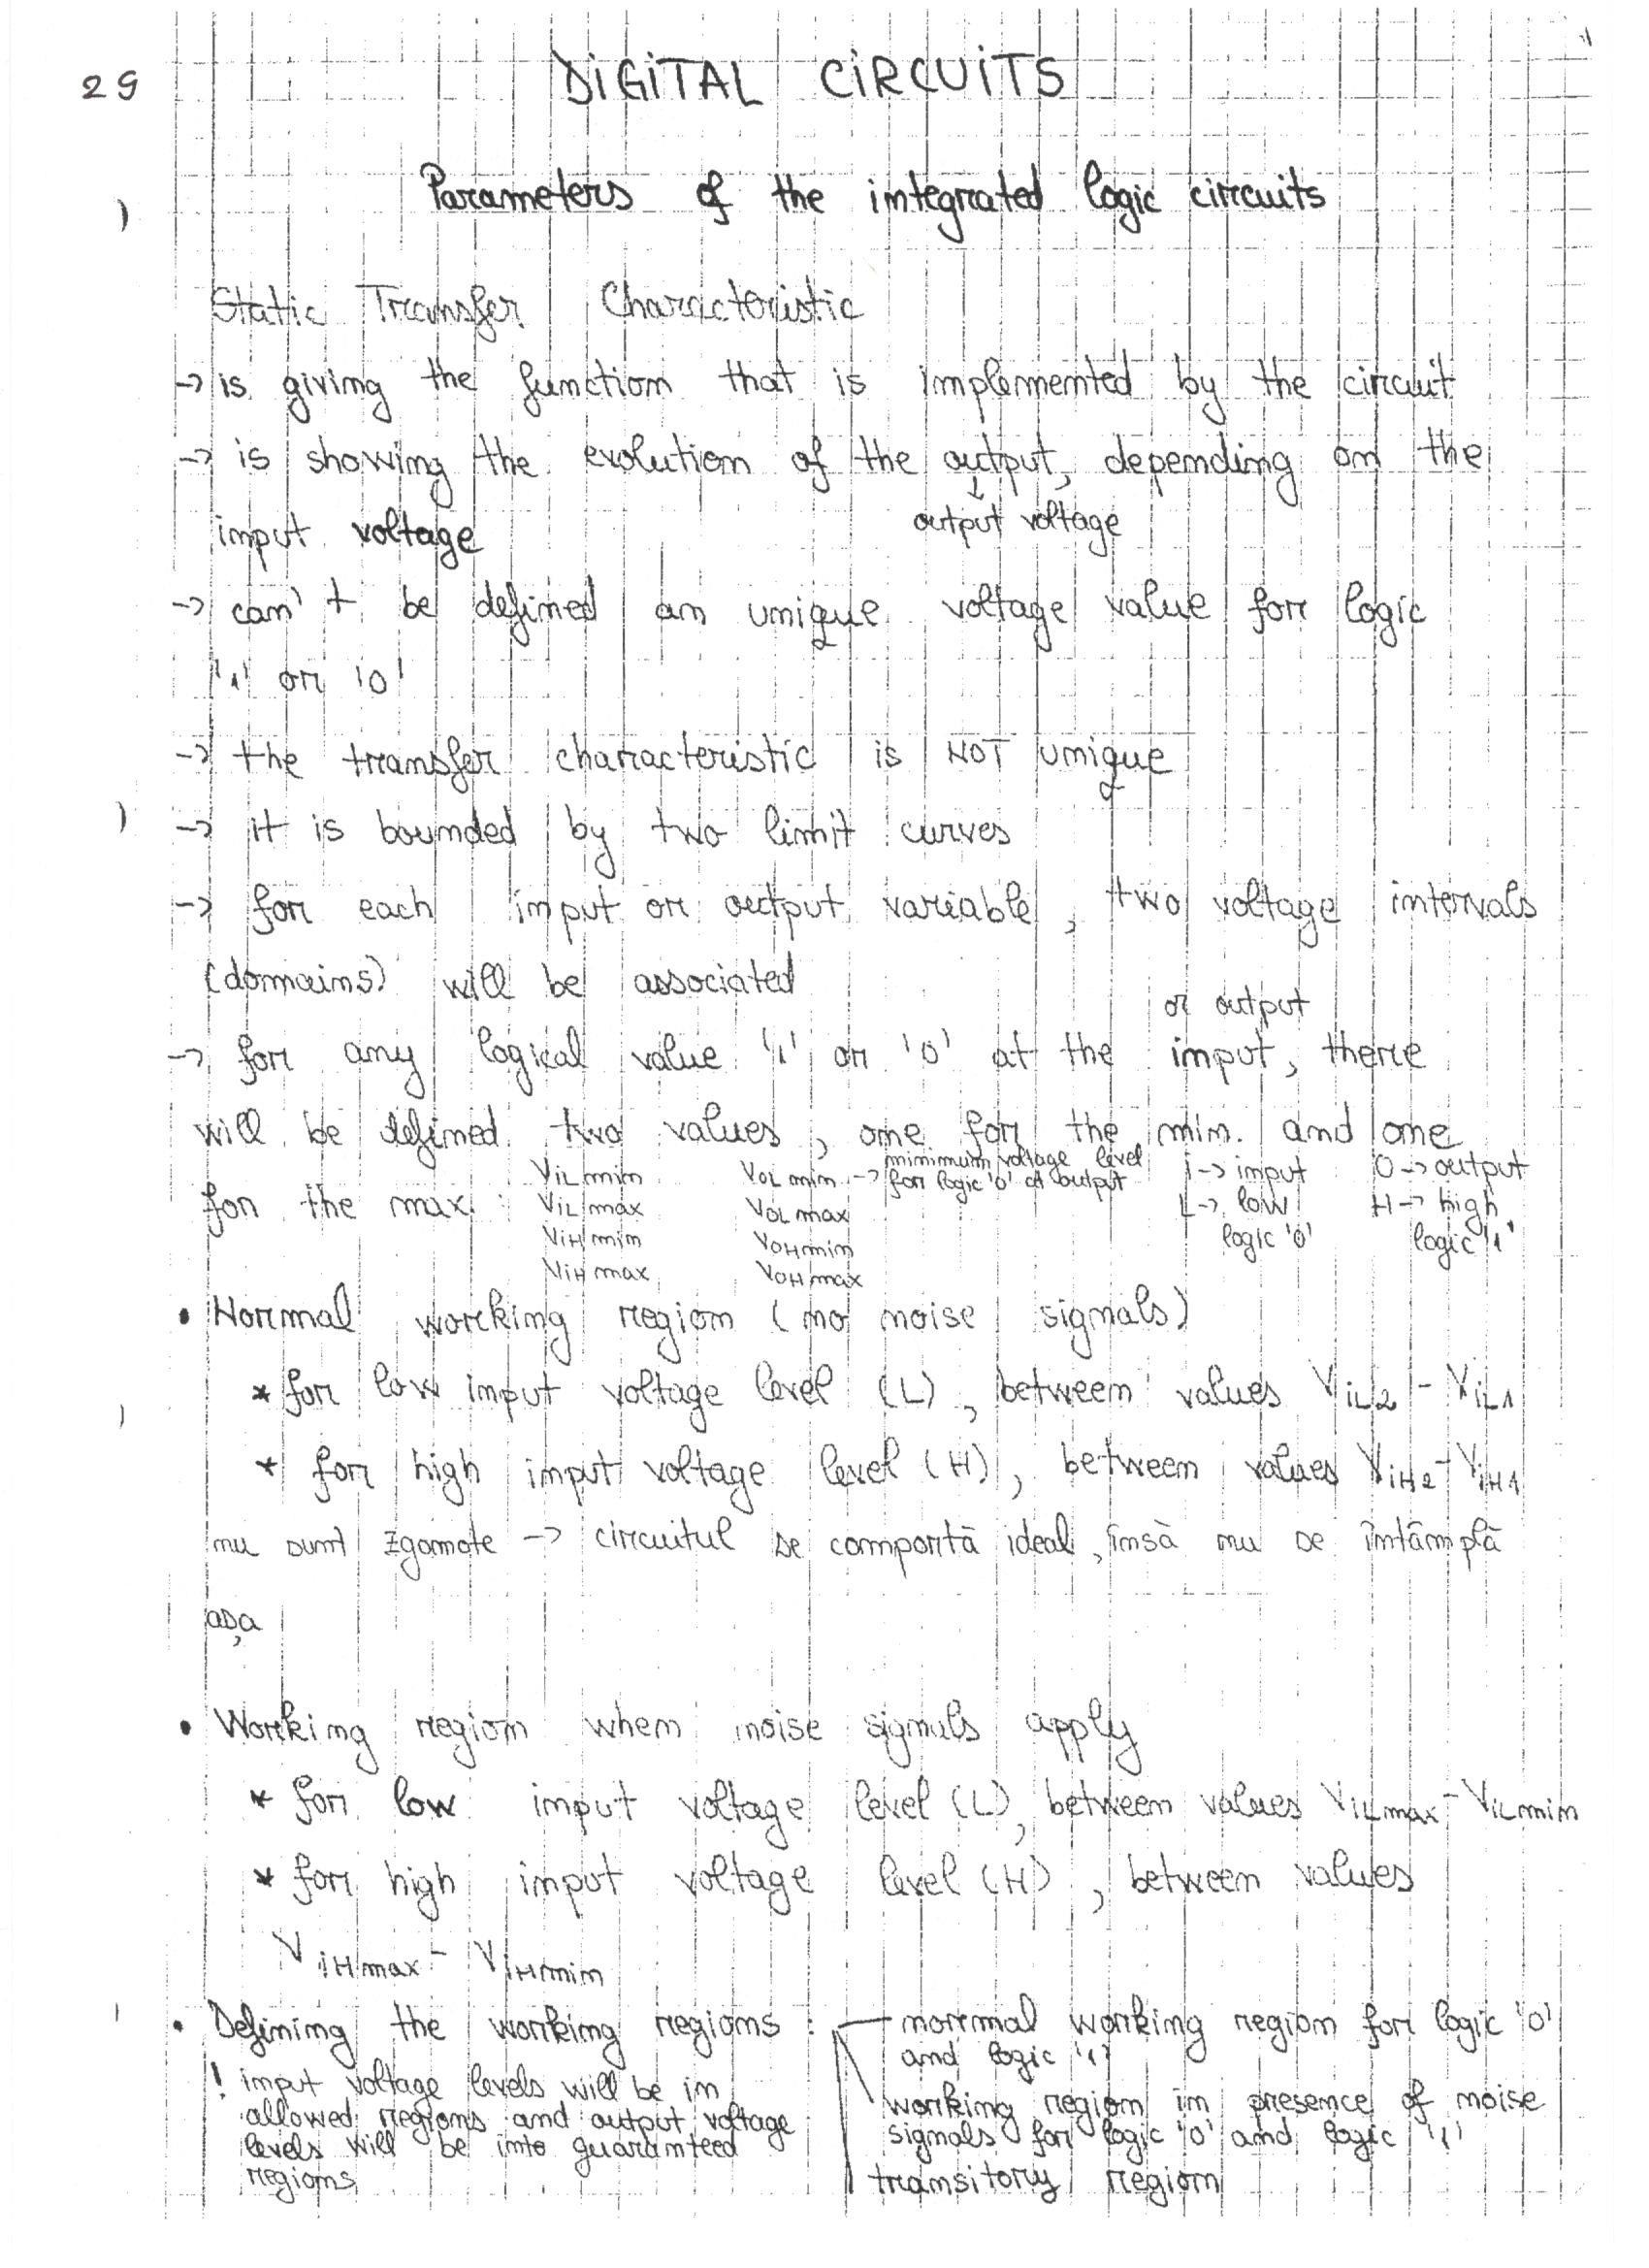 29
DIGITAL CIRCUITS
Parameters of the integrated logic circuits
Static Transfer Characteristic
-> is giving the function that is implemented by the circuit
-> is showing the evolution of the output, depending on the
↓
output voltage
input voltage
-> can't be defined an unique voltage value for logic
'1' or '0'
-> the transfer characteristic is NOT unique
-> it is bounded by two limit curves
-> for each input or output variable, two voltage intervals
(domains) will be associated
or output
-> for any logical value '1' or '0' at the input, there
will be defined two values, one for the min. and one
for the max :
VIL min
VIL max
VIH min
VIH max
VOL min -> minimum voltage level
for logic '0' at output
VOL max
VOH min
VOH max
i -> input O -> output
L -> low H -> high
logic '0' logic '1'
• Normal working region (no noise signals)
* for low input voltage level (L), between values ViL2 - ViL1
* for high input voltage level (H), between values ViH2 - ViH1
nu sunt zgomote -> circuitul se comportă ideal, însă nu se întâmplă
așa
• Working region when noise signals apply
* for low input voltage level (L), between values VILmax - VILmin
* for high input voltage level (H), between values
ViHmax - ViHmin
• Defining the working regions :
normal working region for logic '0'
and logic '1'
working region in presence of noise
signals for logic '0' and logic '1'
transitory region
! input voltage levels will be in
allowed regions and output voltage
levels will be into guaranteed
regions